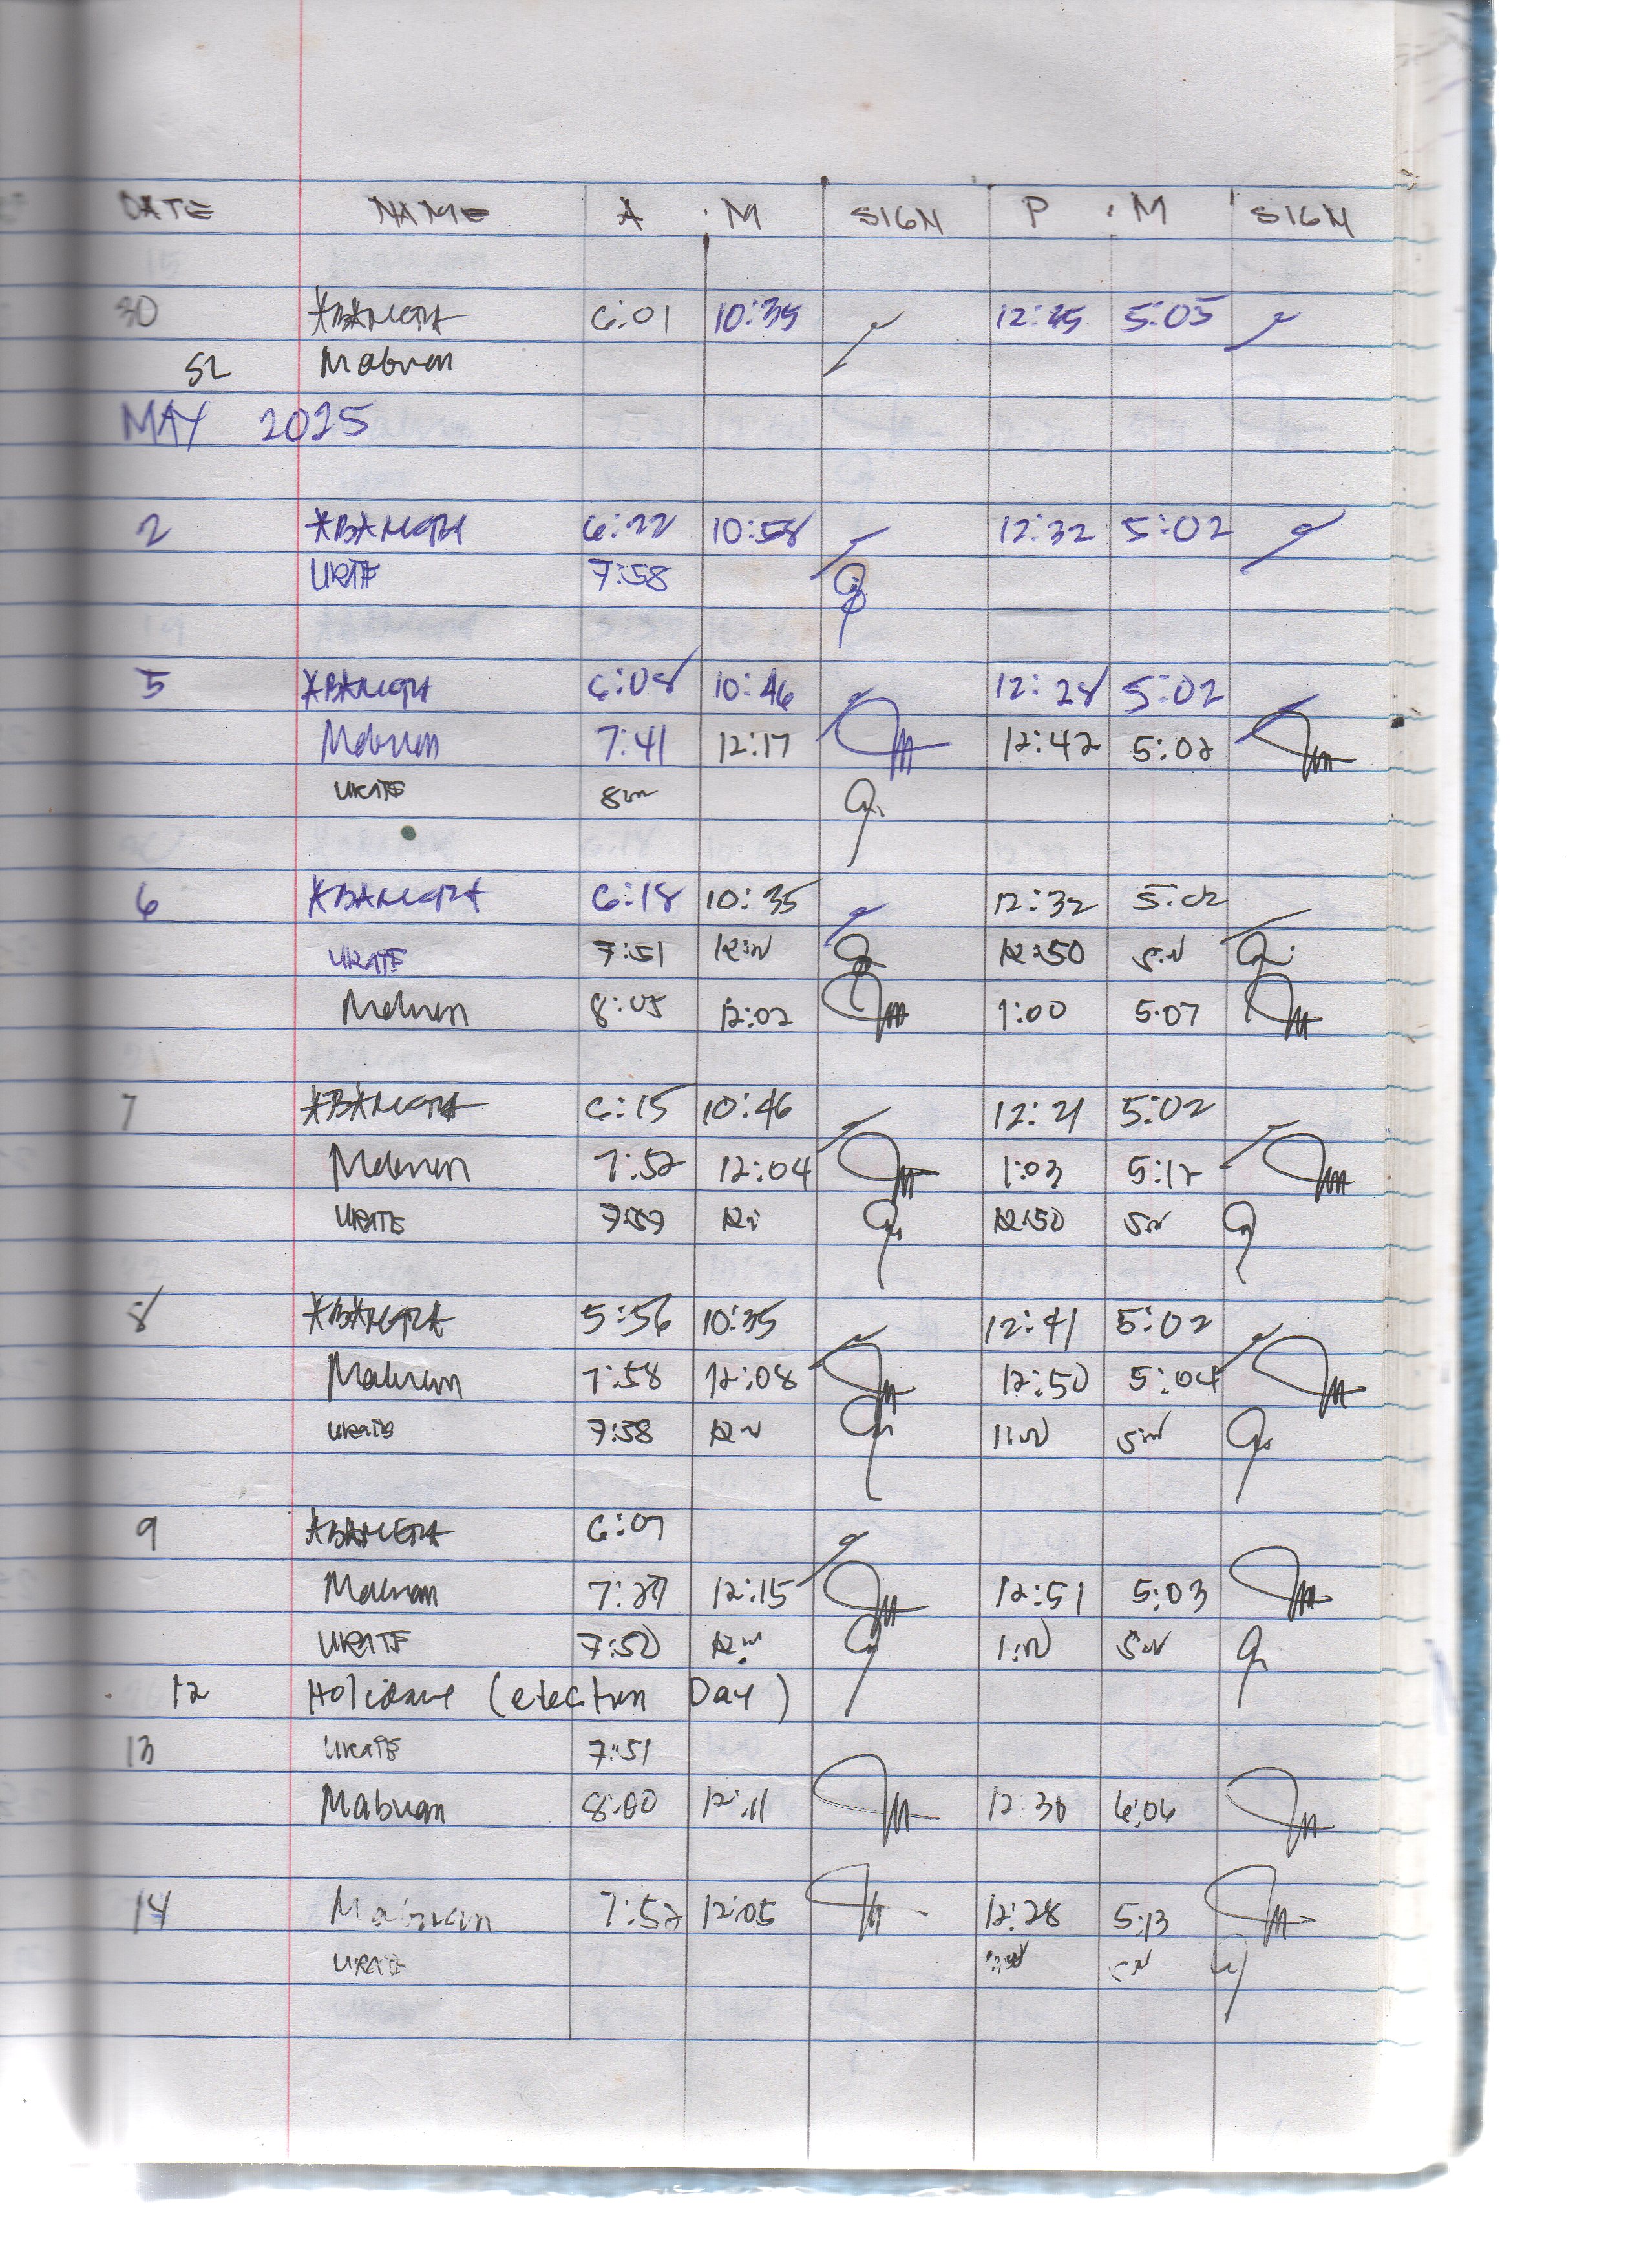 DATE NAME A . M SIGN P . M SIGN
30 ABANGTA 6:01 10:35 12:45 5:05
SL Mabuan
MAY 2025
2 ABANGTA 6:22 10:58 12:32 5:02
URATE 7:58
5 ABANGTA 6:08 10:46 12:28 5:02
Mabuan 7:41 12:17 12:42 5:02
URATE
6 ABANGTA 6:18 10:35 12:32 5:02
URATE 7:51 12:50
Mabuan 8:05 12:02 1:00 5:07
7 ABANGTA 6:15 10:46 12:21 5:02
Mabuan 7:52 12:04 1:03 5:12
URATE 7:57 12:50
8 ABANGTA 5:56 10:35 12:41 5:02
Mabuan 7:58 12:08 12:50 5:04
URATE 7:58
9 ABANGTA 6:07
Mabuan 12:15 12:51 5:03
URATE 7:50
12 Holiday (election Day)
13 URATE 7:51
Mabuan 8:00 12:11 12:30 6:06
14 Mabuan 7:52 12:05 12:28 5:13
URATE